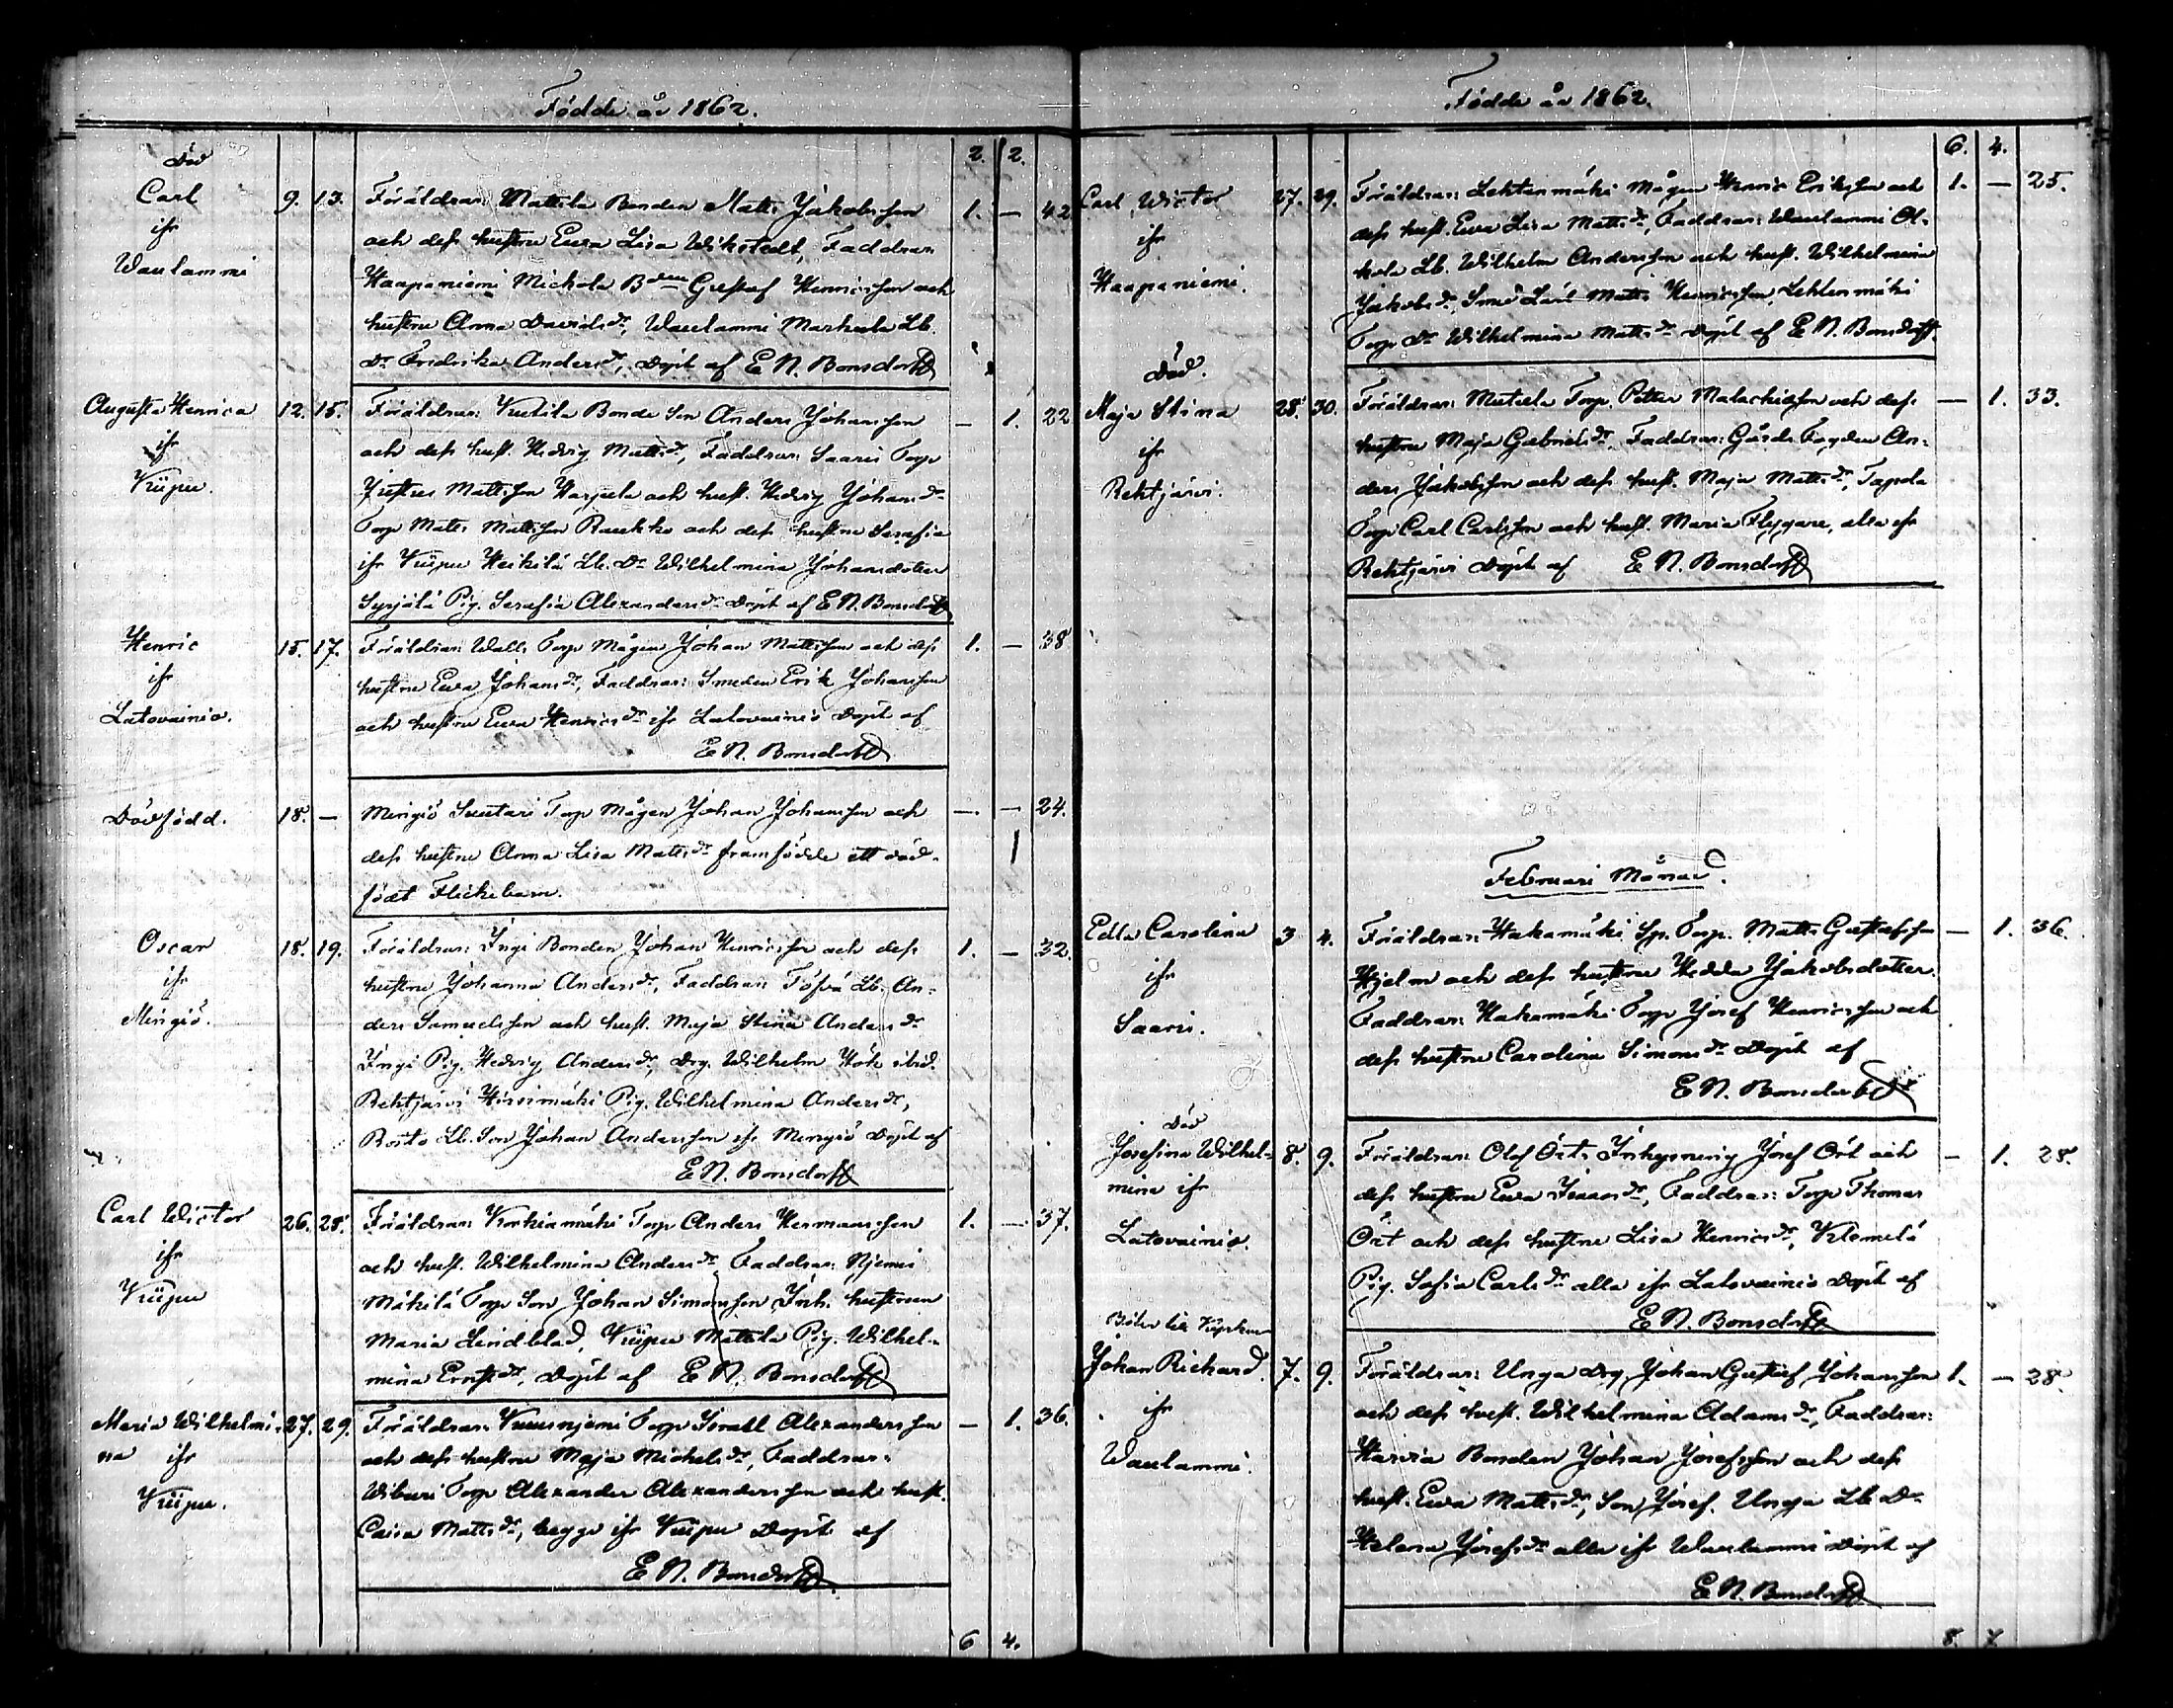 Födde år 1862.
2. 2.
Död
Carl 9. 13. Föräldrar: Mattila Bonden Matts Jakobsson 1. — 42
ifr och dess hustru Eva Lisa Wikstedt, Faddrar:
Waulammi Haapaniemi Mickola Bden Gustaf Henricsson och
hustru Anna Davidsdr, Waulammi Markula Lb.
Dr Fredrika Andersdr, Döpt af E N. Bonsdorff
Augusta Henrica 12. 15. Föräldrar: Kuttila Bonde Son Anders Johansson — 1. 22
ifr och dess hust. Hedvig Mattsdr, Faddrar: Saaris Torp
Küpu. Justus Mattsson Harjula och hust. Hedvig Johansdr
Torp Matts Mattsson Raukko och dess hustru Serafia
ifr Küpu Heikilä Lb. Dr Wilhelmina Johansdotter
Syrjälä Pig. Serafia Alexandersdr Döpt af E N. Bonsdorff
Henric 15. 17. Föräldrar: Walli Torp Mågen Johan Mattsson och dess 1. — 38
ifr hustru Eva Johansdr, Faddrar: Smeden Erik Johansson
Latovainio. och hustru Eva Henricsdr ifr Latovainio Döpt af
E N. Bonsdorff
Dödfödd. 18. — Mengiö Suutari Torp Mågen Johan Johansson och — — 24.
dess hustru Anna Lisa Mattsdr framfödde ett död- 1
födt Flickebarn.
Oscar 18. 19. Föräldrar: Ingi Bonden Johan Henricsson och dess 1. — 32.
ifr hustru Johanna Andersdr, Faddrar: Töfvä Lb. An-
Mengiö. ders Samuelsson och hust. Maja Stina Andersdr
Ingi Pig. Hedvig Andersdr, Drg. Wilhelm Hök ibid.
Rehtjärvi Hirsimäki Pig. Wilhelmina Andersdr,
Rosto Lb. Son Johan Andersson ifr Mengiö Döpt af
E N. Bonsdorff
Carl Wictor 26. 28. Föräldrar: Korkiamäki Torp Anders Hermansson 1. — 37.
ifr och hust. Wilhelmina Andersdr Faddrar: Njemi
Küpu Mäkilä Torp Son Johan Simonsson, Inh. hustrun
Maria Lindblad, Küpu Mattila Pig. Wilhel-
mina Ernstdr, Döpt af E N. Bonsdorff
Maria Wilhelmi- 27. 29. Föräldrar: Kuusnjemi Torp Israel Alexandersson — 1. 36.
na ifr och dess hustru Maja Michelsdr, Faddrar:
Küpu. Wiburi Torp Alexander Alexandersson och hust.
Caisa Mattsdr, begge ifr Küpu Döpt af
E N. Bonsdorff
6 4.
Födde år 1862.
6. 4.
Carl Wictor 27. 29. Föräldrar: Lehtenmäki Mågen Henric Ericsson och 1. — 25.
ifr dess hust. Eva Lisa Mattsdr, Faddrar: Waulammi Ol-
Haapaniemi. kola Lb. Wilhelm Andersson och hust. Wilhelmina
Jakobsdr, Smed Lärl Matts Henricsson, Lehtenmäki
Torp Dr Wilhelmina Mattsdr Döpt af E N. Bonsdorff.
Död.
Maja Stina 28. 30. Föräldrar: Mutula Torp. Petter Malachiasson och dess — 1. 33.
ifr hustru Maja Gabrielsdr Faddrar: Gårds Fogden An-
Rehtjärvi. ders Jakobsson och dess hust. Maja Mattsdr, Tapola
Torp Carl Carlsson och hust. Maria Flygare, alla ifr
Rehtjärvi Döpt af E N. Bonsdorff
Februari Månad.
Edla Carolina 3 4. Föräldrar: Hakamäki Sp. Torp. Matts Gustafsson — 1. 36.
ifr Hjelm och dess hustru Hedda Jakobsdotter.
Saaris. Faddrar: Hakamäki Torp Josef Henricsson och
dess hustru Carolina Simonsdr Döpt af
E N. Bonsdorff
Död
Josefina Wilhel- 8. 9. Föräldrar: Olof Örts Inhysning Josef Ört och — 1. 28.
mina ifr dess hustru Eva Isaacsdr, Faddrar: Torp Thomas
Latovainio. Ört och dess hustru Lisa Henricsdr,
Pig. Sofia Carlsdr alla ifr Latovainio Döpt af
E N. Bonsdorff
Johan Richard 7. 9. Föräldrar: Unga Drg Johan Gustaf Johansson 1. — 28.
ifr och dess hust. Wilhelmina Adamsdr, Faddrar:
Waulammi. Harvia Bonden Johan Josefsson och dess
hust. Eva Mattsdr, Son Josef. Unga Lb Dr
Helena Josefsdr alla ifr Waulammi Döpt af
E N. Bonsdorff
8. 7.